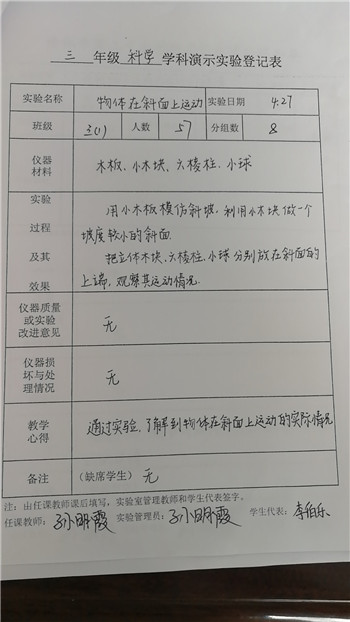 三 年级 科学 学科演示实验登记表
实验名称 物体在斜面上运动 实验日期 4.27
班级 三(1) 人数 57 分组数 8
仪器 材料 木板、小木块、六棱柱、小球
实验 过程 及其 效果
用小木板模仿斜坡,利用小木块做一个
坡度较小的斜面.
把立体木块、六棱柱、小球分别放在斜面的
上端,观察其运动情况.
仪器质量 或实验 改进意见 无
仪器损 坏与处 理情况 无
教学 心得 通过实验、了解到物体在斜面上运动的实际情况
备注 (缺席学生) 无
注:由任课教师课后填写,实验室管理教师和学生代表签字。
任课教师: 孙明霞 实验管理员: 孙明霞 学生代表: 李伯乐